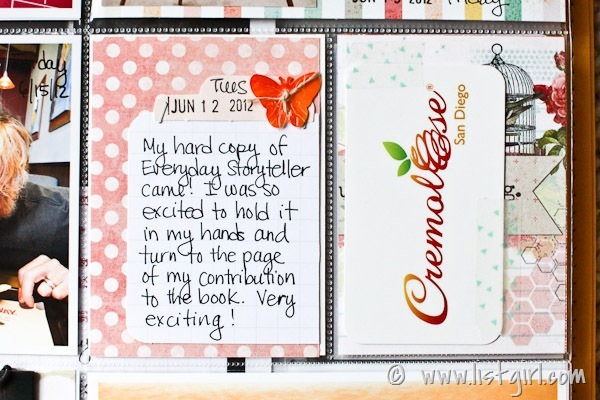 JUN 1 5 2012
Friday
6/15/12
Tues
JUN 1 2 2012
My hard copy of
Everyday Storyteller
came! I was so
excited to hold it
in my hands and
turn to the page
of my contribution
to the book. Very
exciting!
Cremolose®
San Diego
© www.listgirl.com